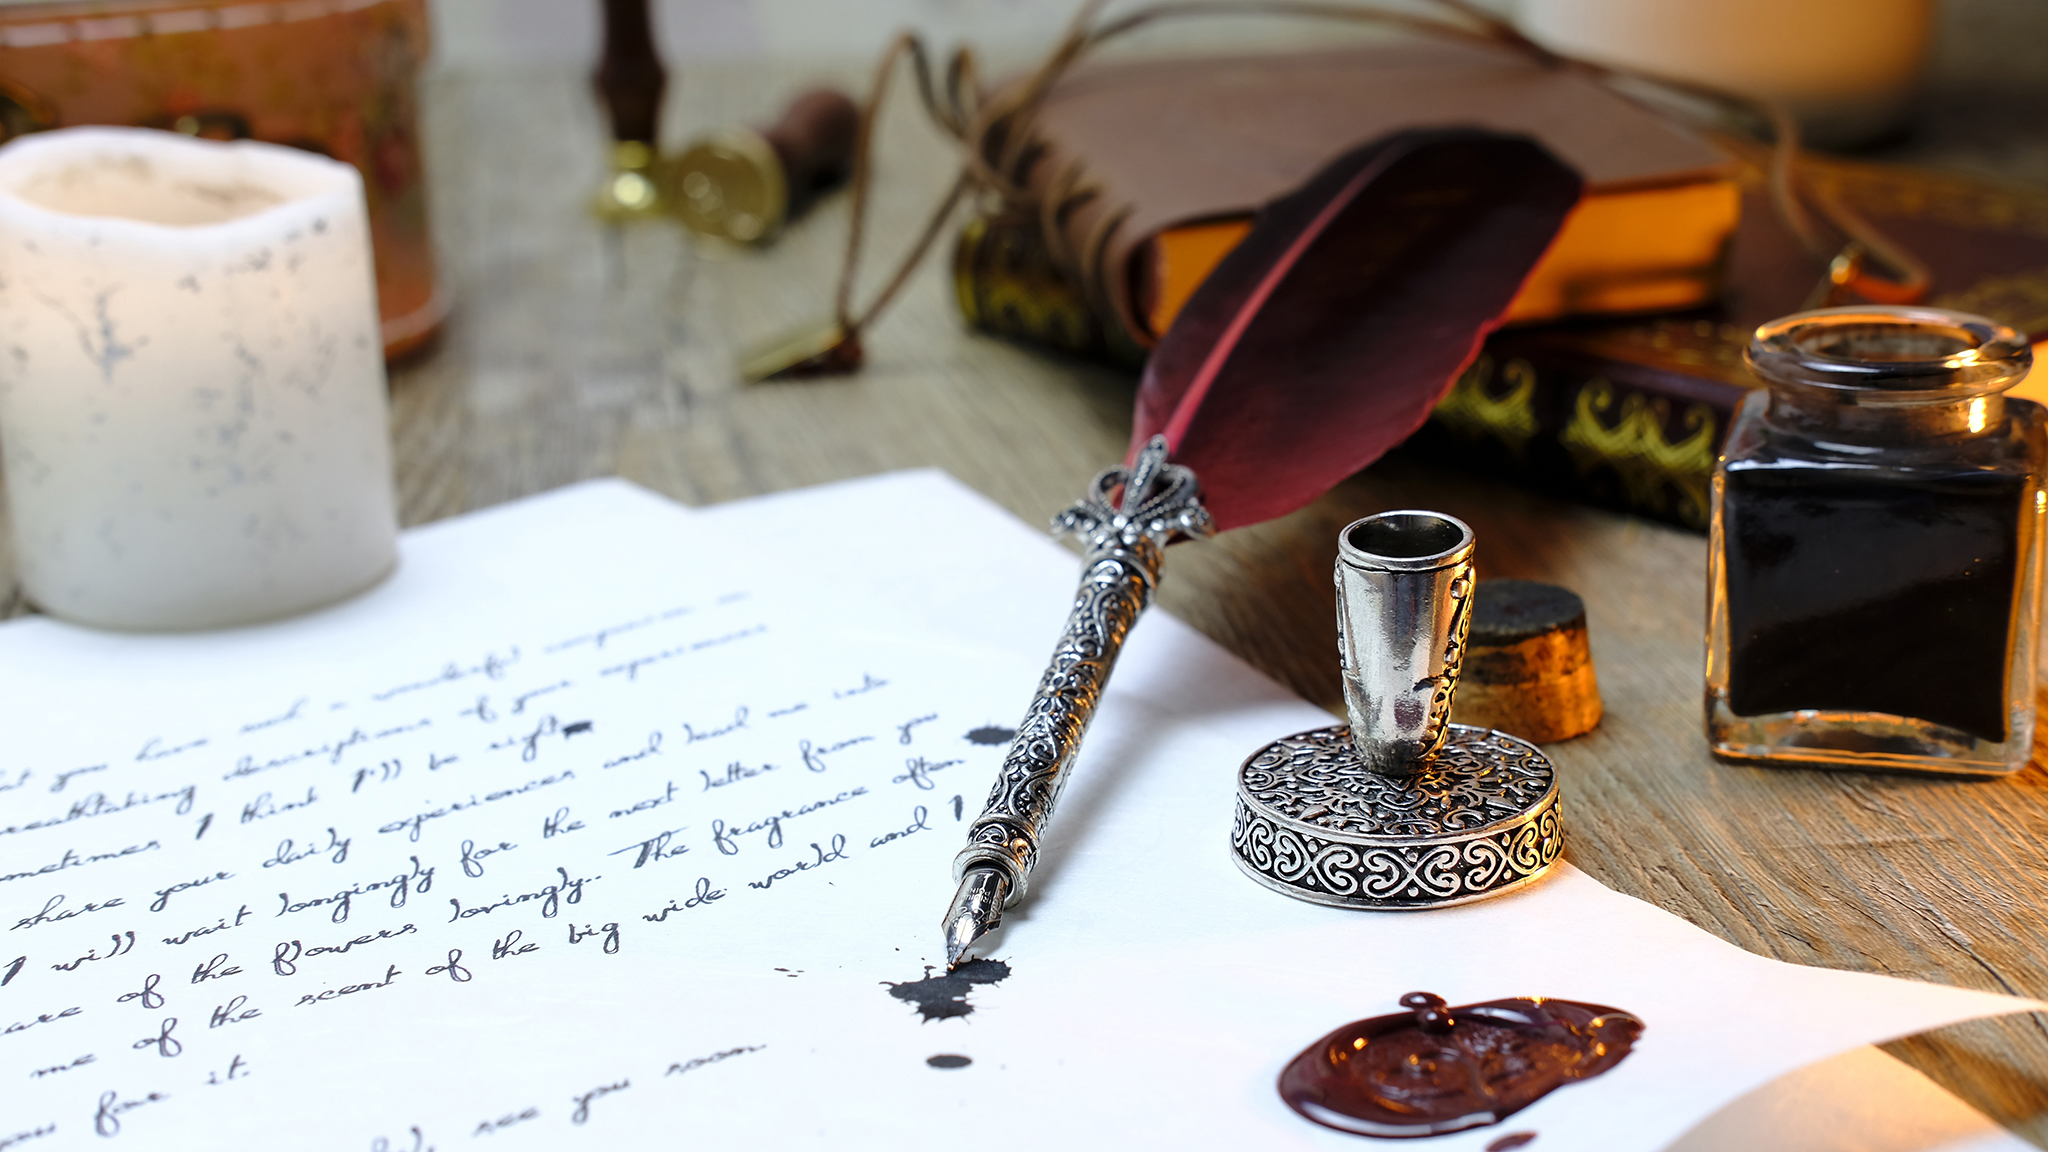 you have such a wonderful companion
breathtaking descriptions of your experiences
sometimes I think I'll be right
share your daily experiences and lead me into
I will wait longingly for the next letter from you
care of the flowers lovingly.. The fragrance often
me of the scent of the big wide world and I
you for it.
see you soon